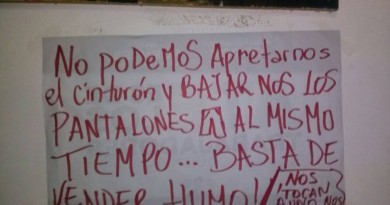 No PoDeMoS Apretarnos
el cinturón y BAJAR NOS LOS
PANTALONES A AL MISMO
TIEMPO... BASTA DE
VENDER HUMO!
NOS
TOCAN
NOS